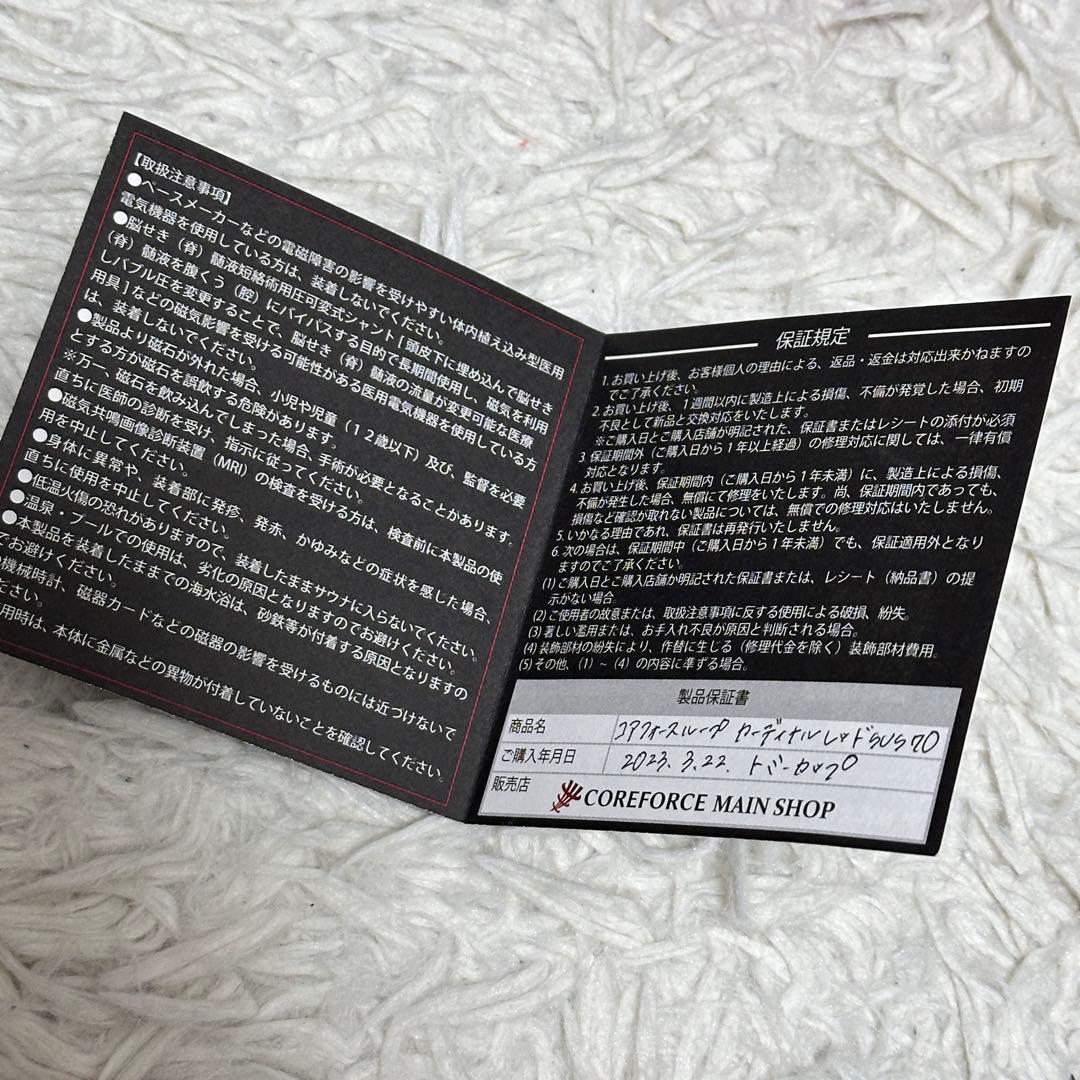 【取扱注意事項】
●ペースメーカーなどの電磁障害の影響を受けやすい体内植え込み型医用
電気機器を使用している方は、装着しないでください。
●脳せき（脊）髄液短絡術用圧可変式シャント[頭皮下に埋め込んで脳せき
（脊）髄液を腹くう（腔）にバイパスする目的で長期間使用し、磁気を利用
しバブル圧を変更することで、脳せき（脊）髄液の流量が変更可能な医療
用具]などの磁気影響を受ける可能性がある医用電気機器を使用している方
は、装着しないでください。
●製品より磁石が外れた場合、小児や児童（12歳以下）及び、監督を必要
とする方が磁石を誤飲する危険があります。
※万一、磁石を飲み込んでしまった場合、手術が必要となることがあります。
直ちに医師の診断を受け、指示に従ってください。
●磁気共鳴画像診断装置（MRI）の検査を受ける方は、検査前に本製品の使
用を中止してください。
●身体に異常や、装着部に発疹、発赤、かゆみなどの症状を感じた場合、
直ちに使用を中止してください。
●低温火傷の恐れがありますので、装着したままサウナに入らないでください。
●温泉・プールでの使用は、劣化の原因となりますのでお避けください。
●本製品を装着したままでの海水浴は、砂鉄等が付着する原因となりますの
でお避けください。
機械時計、磁器カードなどの磁器の影響を受けるものには近づけないで
ださい。
用時は、本体に金属などの異物が付着していないことを確認してください。
保証規定
1. お買い上げ後、お客様個人の理由による、返品・返金は対応出来かねますの
でご了承ください。
2. お買い上げ後、1週間以内に製造上による損傷、不備が発覚した場合、初期
不良として新品と交換対応をいたします。
※ご購入日とご購入店舗が明記された、保証書またはレシートの添付が必須
3. 保証期間外（ご購入日から1年以上経過）の修理対応に関しては、一律有償
対応となります。
4. お買い上げ後、保証期間内（ご購入日から1年未満）に、製造上による損傷、
不備が発生した場合、無償にて修理をいたします。尚、保証期間内であっても、
損傷など確認が取れない製品については、無償での修理対応はいたしません。
5. いかなる理由であれ、保証書は再発行いたしません。
6. 次の場合は、保証期間中（ご購入日から1年未満）でも、保証適用外となり
ますのでご了承ください。
(1) ご購入日とご購入店舗が明記された保証書または、レシート（納品書）の提
示がない場合
(2) ご使用者の故意または、取扱注意事項に反する使用による破損、紛失。
(3) 著しい濫用または、お手入れ不良が原因と判断される場合。
(4) 装飾部材の紛失により、作替に生じる（修理代金を除く）装飾部材費用。
(5) その他、(1)～(4)の内容に準ずる場合。
製品保証書
商品名 コアフォースループ カーディナルレッドSUS70
ご購入年月日 2023.3.22. トバーカップ
販売店 COREFORCE MAIN SHOP